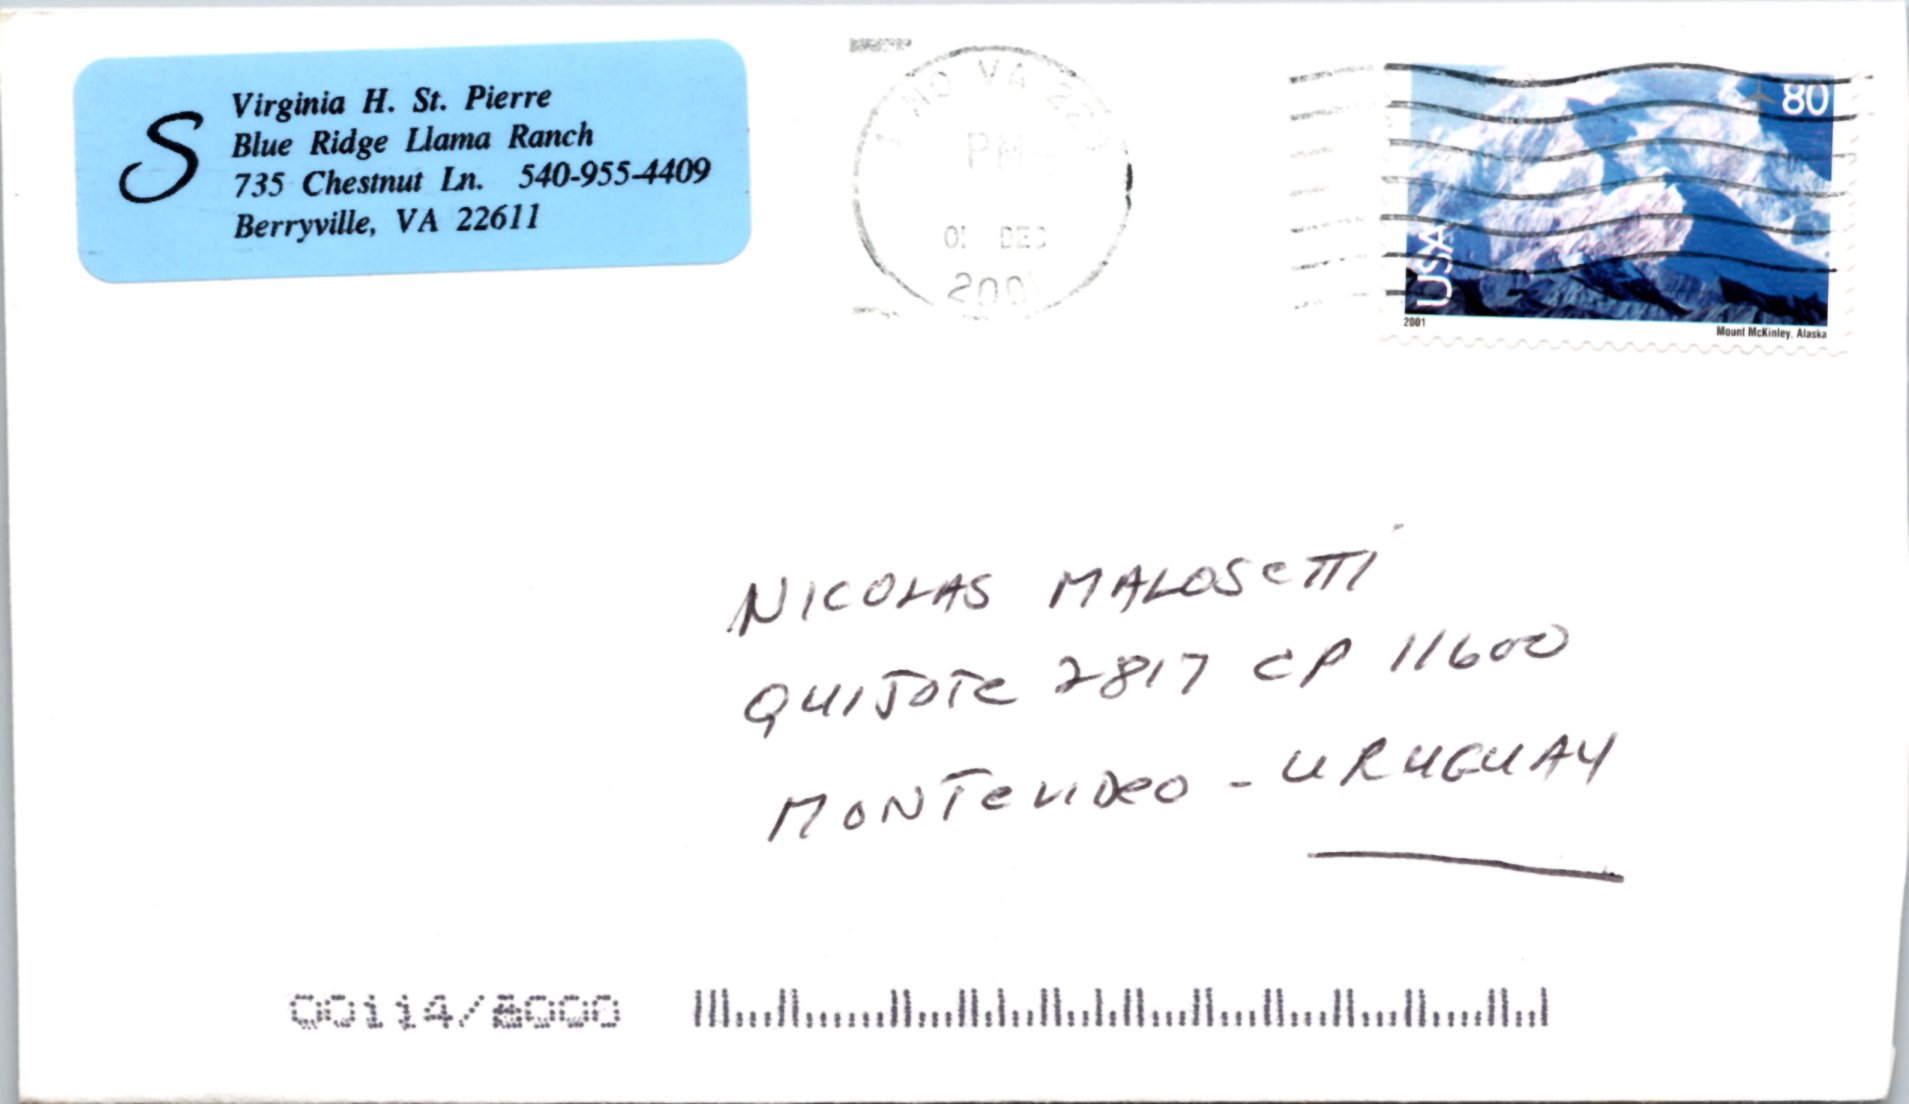 S
Virginia H. St. Pierre
Blue Ridge Llama Ranch
735 Chestnut Ln. 540-955-4409
Berryville, VA 22611
VA
PM
DEC
80
USA
2001
Mount McKinley, Alaska
NICOLAS MALOSETTI
QUIJOTE 2817 CP 11600
MONTEVIDEO - URUGUAY